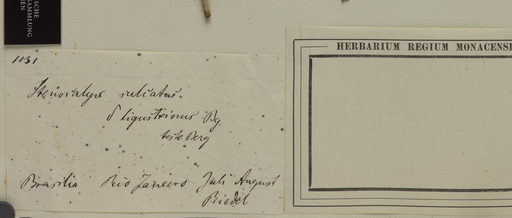 SCHE
SAMMLUNG
EN
1031
Stenocalyx sulcatus.
δ ligustrinus Bg.
teste Berg
Brasilia Rio Janeiro Juli August
Riedel
HERBARIUM REGIUM MONACENS